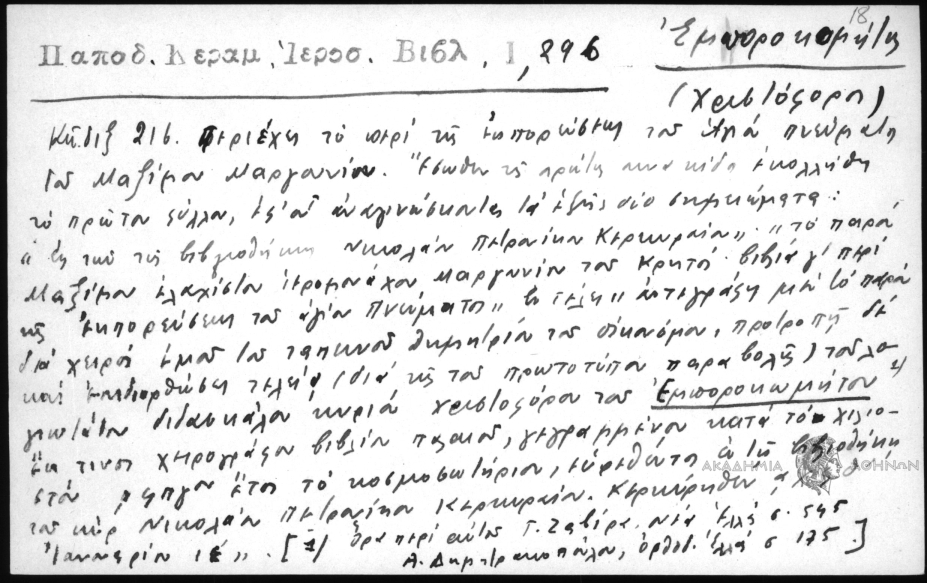 18
Παποδ. Κεραμ. Ἱεροσ. Βιβλ. 1, 296
Ἐμποροκομήτης
(Χριστόφορος)
Κῶδιξ 216. Περιέχει τὸ περὶ τῆς ἐκπορεύσεως τοῦ ἁγίου πνεύματος
τοῦ Μαξίμου Μαργουνίου. Ἔσωθεν τῆς πρώτης πινακίδος ἐκολλήθη
τὸ πρῶτον φύλλον, ἐφ' οὗ ἀναγινώσκονται τὰ ἑξῆς δύο σημειώματα:
"Ἐκ τῶν τῆς βιβλιοθήκης Νικολάου Πετρονίκου Κερκυραίου". "Τὸ παρὸν
Μαξίμου ἐλαχίστου ἱερομονάχου Μαργουνίου τοῦ Κρητὸς βιβλία γ' περὶ
τῆς ἐκπορεύσεως τοῦ ἁγίου Πνεύματος" ἐν τέλει "ἀντεγράφη μὲν τὸ παρὸν
διὰ χειρὸς ἐμοῦ τοῦ ταπεινοῦ Δημητρίου τοῦ οἰκονόμου, προτροπῇ δὲ
καὶ ἐπιδιορθώσει τελείᾳ (διὰ τῆς τοῦ πρωτοτύπου παραβολῆς) τοῦ λο-
γιωτάτου διδασκάλου κυρίου Χριστοφόρου τοῦ Ἐμποροκωμήτου 1)
ἔκ τινος χειρογράφου βιβλίου παλαιοῦ, γεγραμμένου κατὰ τὸ χιλιο-
στὸν ἔτος τὸ κοσμοσωτήριον, εὑρεθέντος ἐν τῇ βιβλιοθήκῃ
τοῦ κὺρ Νικολάου Πετρονίκου Κερκυραίου. Κερκύρηθεν
Ἰαννουαρίου ιε'". [1) Ὅρα περὶ αὐτοῦ Γ. Ζαβίρα, Νέα Ἑλλὰς σ. 545
Α. Δημητρακοπούλου, ὀρθόδ. Ἑλλὰς σ 175.]
ΑΚΑΔΗΜΙΑ ΑΘΗΝΩΝ